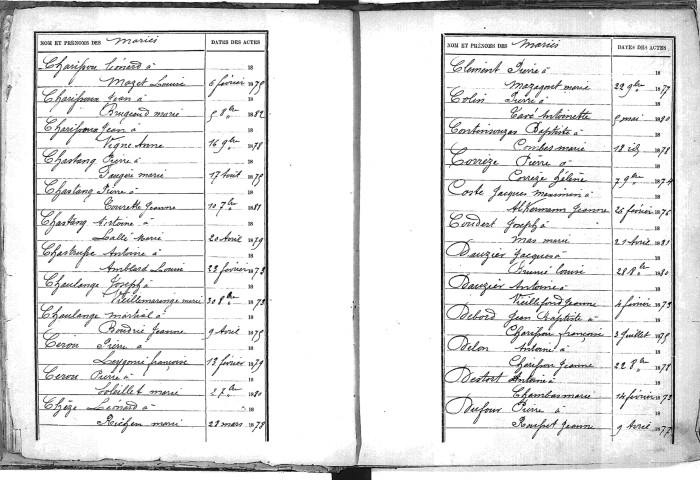 NOM ET PRÉNOMS DES Mariés DATES DES ACTES
Charissou Léonard à 18
Mazet Louise 6 février 1875
Jean à 18
Brugeaud marie 5 8bre 1882
Jean à 18
Vigne Anne 16 9bre 1878
Chastang Pierre à 18
marie 17 Août 1875
Chastang Pierre à 18
Tourette Jeanne 10 7bre 1881
Chastang Antoine à 18
Marie 20 Avril 1879
Chastrupe Antoine à 18
Amblard Louise 22 février 1873
Chaulange Joseph à 18
Vieillemaringe marie 30 8bre 1873
Chaulange martial à 18
Boudrie Jeanne 9 Avril 1875
Cerou Pierre à 18
françoise 13 février 1879
Cerou Pierre à 18
Soleillet marie 2 7bre 1880
Chèze Léonard à 18
marie 28 mars 1878
NOM ET PRÉNOMS DES Mariés DATES DES ACTES
Clément Pierre à 18
Mazagnet marie 22 9bre 1877
Colin Pierre à 18
Antoinette 5 mai 1880
Continsouzas Baptiste à 18
Combes marie 18 1878
Corrèze Pierre à 18
Corrèze Hélène 7 9bre 1874
Coste Jacques maximin à 18
Alkermann Jeanne 26 février 1876
Coudert Joseph à 18
Mas marie 21 Avril 1881
Dauzier Jacques à 18
Brunie Louise 28 8bre 1880
Dauzier Antoine à 18
Vieillefond Jeanne 4 février 1873
Debord Jean Baptiste à 18
Charissou françoise 3 Juillet 1875
Delon Antoine à 18
Charissou Jeanne 22 8bre 1878
Destort Antoine à 18
Chambas marie 14 février 1873
Dufour Pierre à 18
Jeanne 9 Avril 1877